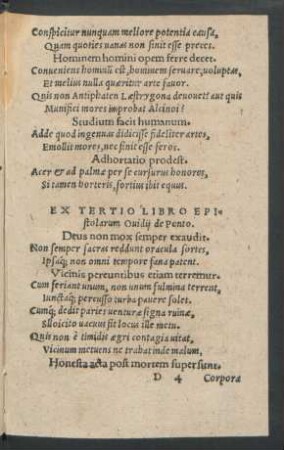 Conspicitur nunquam meliore potentia causa,
Quam quoties uanas non sinit esse preces.
Hominem homini opem ferre decet.
Conueniens homini est, hominem seruare, uoluptas,
Et melius nulla quæritur arte fauor.
Quis non Antiphaten Læstrygona deuouet? aut quis
Munifici mores improbat Alcinoi?
Studium facit humanum.
Adde quod ingenuas didicisse fideliter artes,
Emollit mores, nec sinit esse feros.
Adhortatio prodest.
Acer & ad palmæ per se cursurus honores,
Si tamen horteris, fortius ibit equus.
EX TERTIO LIBRO EPI-
stolarum Ouidij de Ponto.
Deus non mox semper exaudit.
Non semper sacras reddunt oracula sortes,
Ipsaq; non omni tempore fana patent.
Vicinis pereuntibus etiam terremur.
Cum feriant unum, non unum fulmina terrent,
Iunctaq; percusso turba pauere solet.
Cumq; dedit paries uenturæ signa ruinæ,
Sllicito uacuus fit locus ille metu.
Quis non è timidis ægri contagia uitat,
Vicinum metuens ne trahat inde malum,
Honesta acta post mortem supersunt.
D 4 Corpora